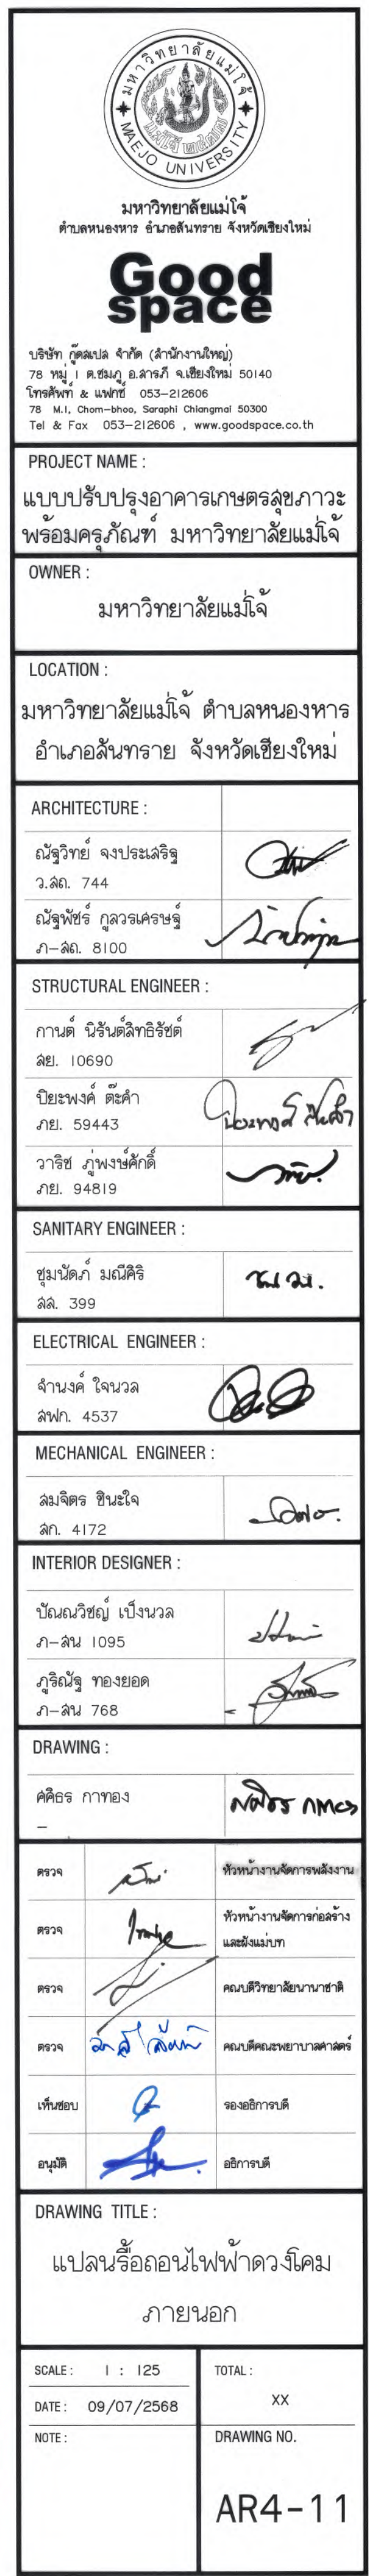 มหาวิทยาลัยแม่โจ้
MAEJO UNIVERSITY
มหาวิทยาลัยแม่โจ้
ตำบลหนองหาร อำเภอสันทราย จังหวัดเชียงใหม่
Good
space
บริษัท กู๊ดสเปส จำกัด (สำนักงานใหญ่)
78 หมู่ 1 ต.ชมภู อ.สารภี จ.เชียงใหม่ 50140
โทรศัพท์ & แฟกซ์ 053-212606
78 M.1, Chom-bhoo, Saraphi Chiangmai 50300
Tel & Fax 053-212606 , www.goodspace.co.th
PROJECT NAME :
แบบปรับปรุงอาคารเกษตรสุขภาวะ
พร้อมครุภัณฑ์ มหาวิทยาลัยแม่โจ้
OWNER :
มหาวิทยาลัยแม่โจ้
LOCATION :
มหาวิทยาลัยแม่โจ้ ตำบลหนองหาร
อำเภอสันทราย จังหวัดเชียงใหม่
ARCHITECTURE :
ณัฐวิทย์ จงประเสริฐ
ว.สถ. 744
ณัฐพัชร์ กูลวรเศรษฐ์
ภ-สถ. 8100
STRUCTURAL ENGINEER :
กานต์ นิรันต์สิทธิรัชต์
สย. 10690
ปิยะพงค์ ต๊ะคำ
ภย. 59443
วาริช ภู่พงษ์ศักดิ์
ภย. 94819
SANITARY ENGINEER :
ชุมนัดภ์ มณีศิริ
สส. 399
ELECTRICAL ENGINEER :
จำนงค์ ใจนวล
สฟก. 4537
MECHANICAL ENGINEER :
สมจิตร ชินะใจ
สก. 4172
INTERIOR DESIGNER :
ปัณณวิชญ์ เป็งนวล
ภ-สน 1095
ภูริณัฐ ทองยอด
ภ-สน 768
DRAWING :
ศศิธร กาทอง
-
ตรวจ หัวหน้างานจัดการพลังงาน
ตรวจ หัวหน้างานจัดการก่อสร้าง
และผังแม่บท
ตรวจ คณบดีวิทยาลัยนานาชาติ
ตรวจ คณบดีคณะพยาบาลศาสตร์
เห็นชอบ รองอธิการบดี
อนุมัติ อธิการบดี
DRAWING TITLE :
แปลนรื้อถอนไฟฟ้าดวงโคม
ภายนอก
SCALE : 1 : 125
TOTAL :
DATE : 09/07/2568
XX
NOTE :
DRAWING NO.
AR4-11